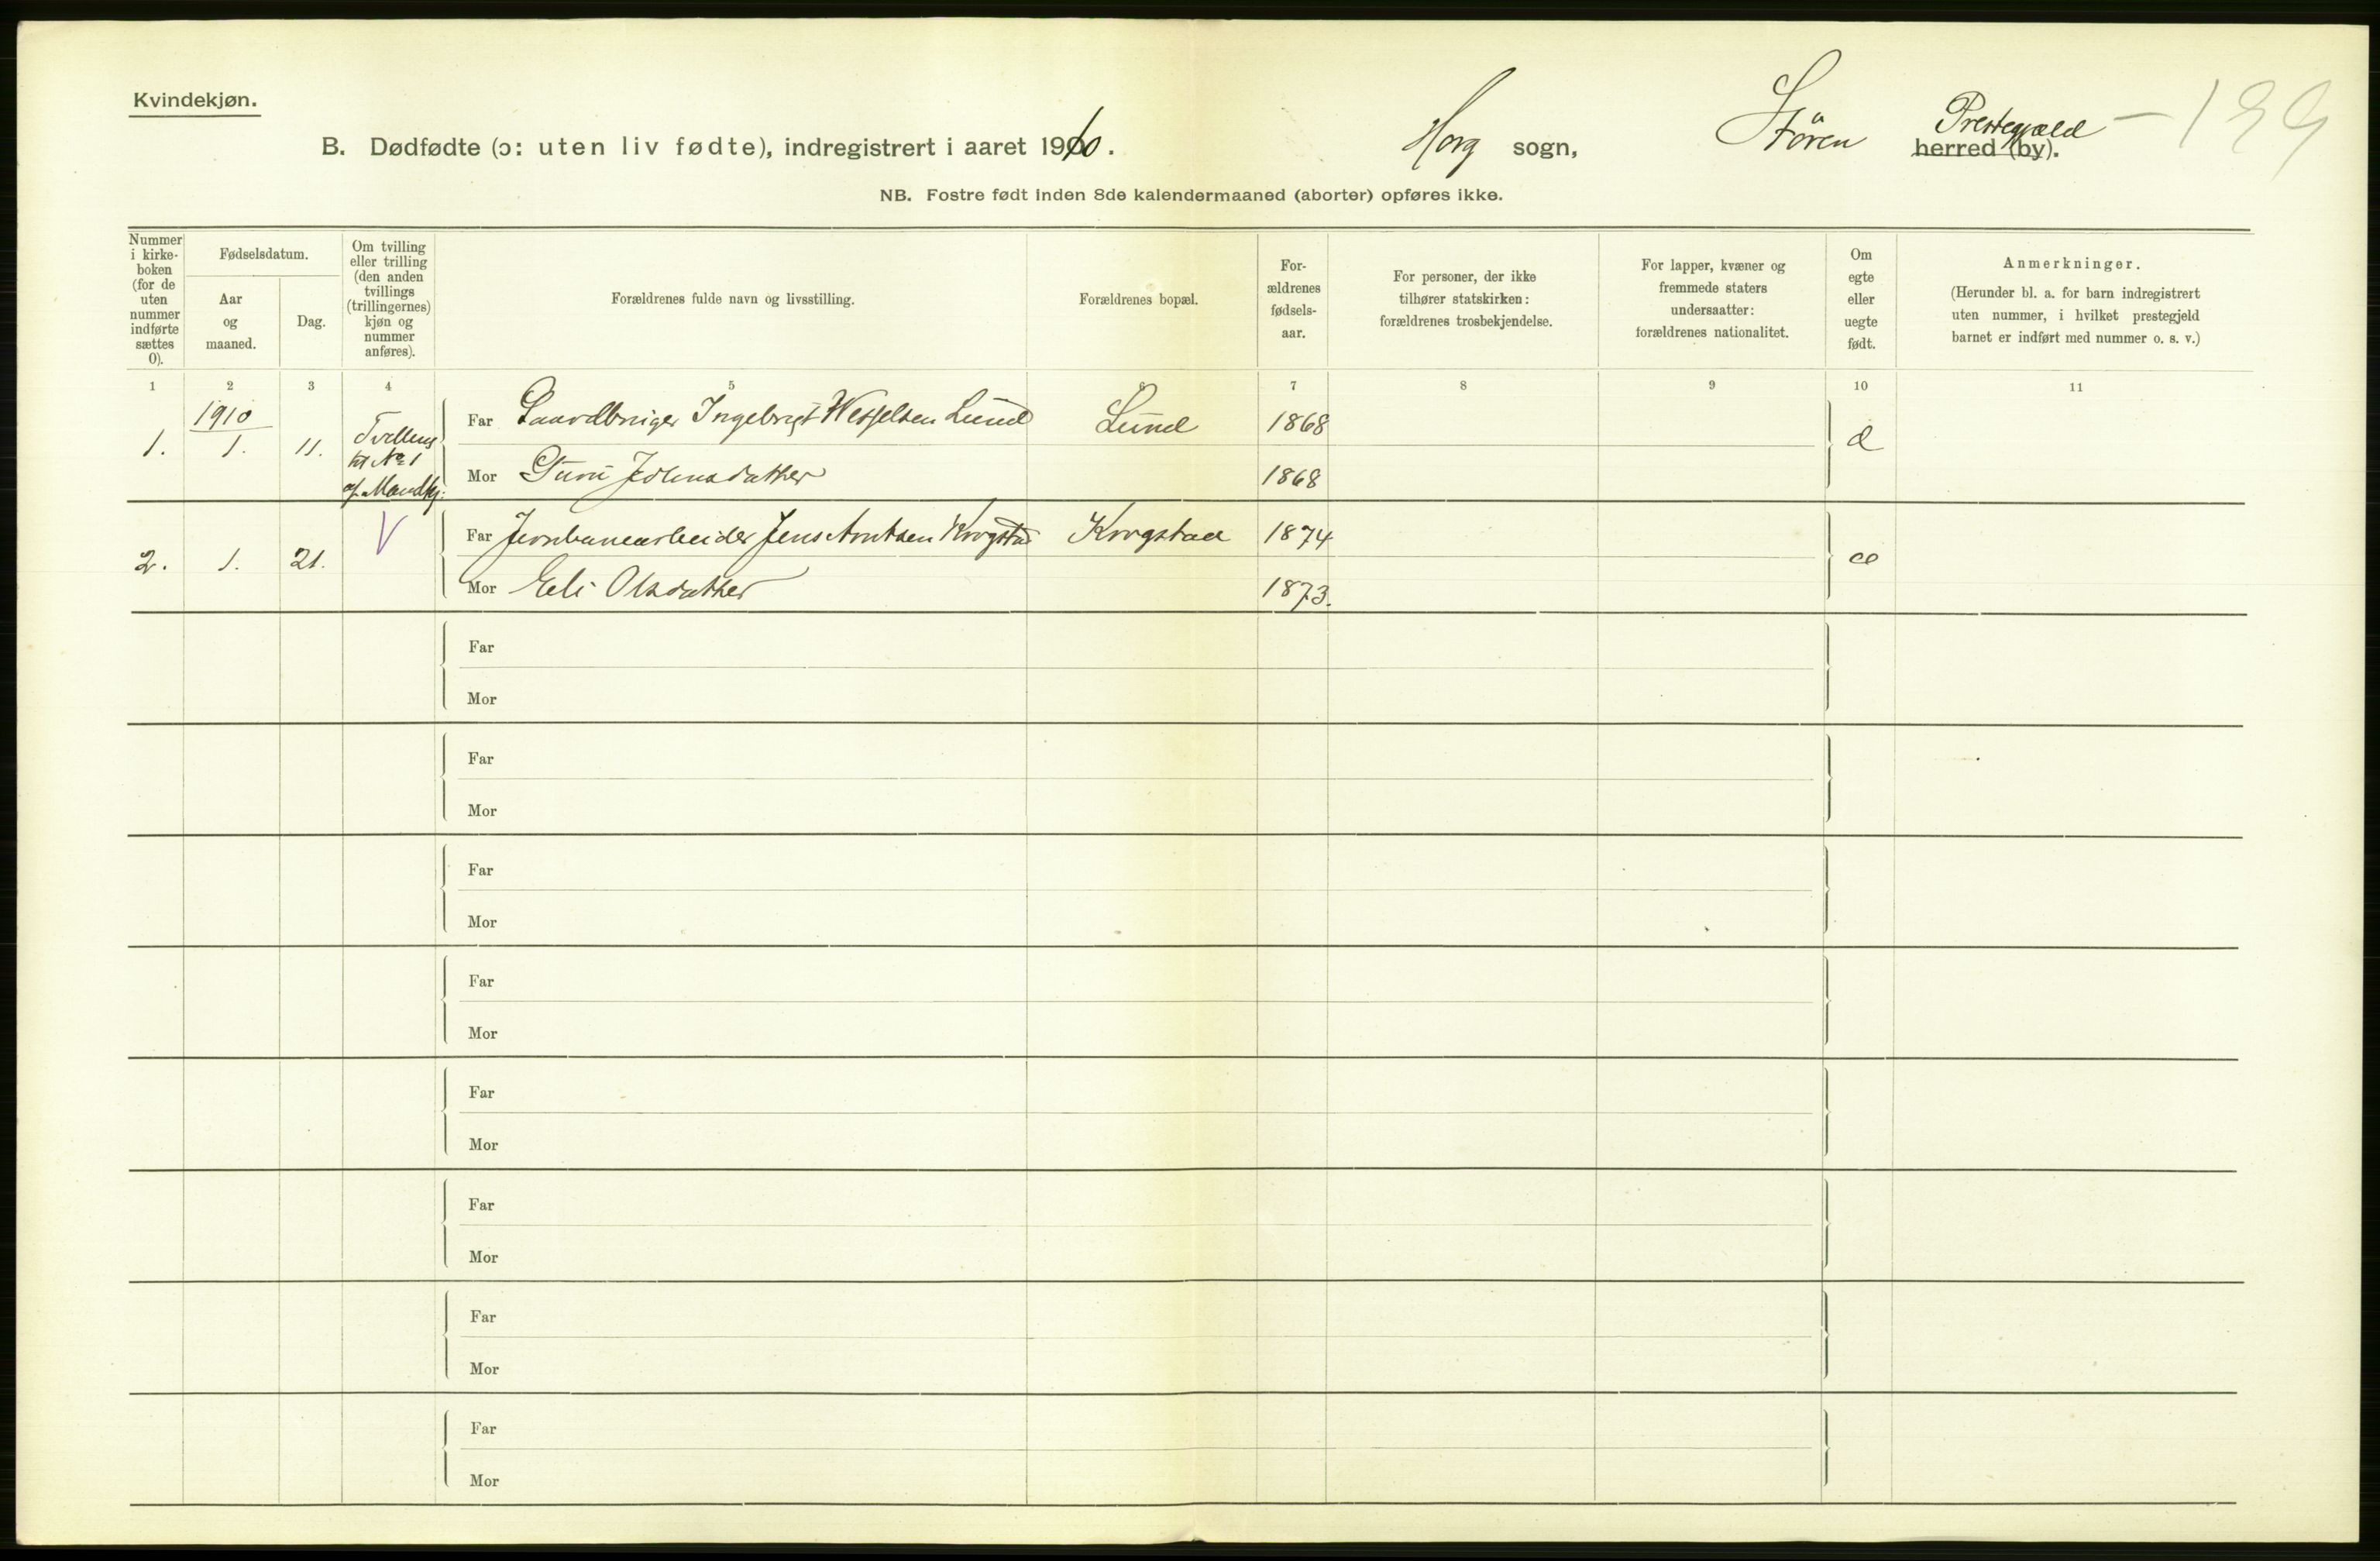 Kvindekjøn.
B. Dødfødte (ɔ: uten liv fødte), indregistrert i aaret 1910. Horg sogn, Støren Prestegjæld herred (by). - 199
NB. Fostre født inden 8de kalendermaaned (aborter) opføres ikke.
Nummer i kirke-boken (for de uten nummer indførte sættes 0).
Fødselsdatum.
Aar og maaned.
Dag.
Om tvilling eller trilling (den anden tvillings (trillingernes) kjøn og nummer anføres).
Forældrenes fulde navn og livsstilling.
Forældrenes bopæl.
For-ældrenes fødsels-aar.
For personer, der ikke tilhører statskirken: forældrenes trosbekjendelse.
For lapper, kvæner og fremmede staters undersaatter: forældrenes nationalitet.
Om egte eller uegte født.
Anmerkninger.
(Herunder bl. a. for barn indregistrert uten nummer, i hvilket prestegjeld barnet er indført med nummer o. s. v.)
1 2 3 4 5 6 7 8 9 10 11
1910
1. 1. 11. Tvilling til No 1 af Mandkj:
Far Gaardbruger Ingebrigt Wesselsen Lund Lund 1868
Mor Guru Johnsdatter 1868
2. 1. 21. V
Far Jernbanearbeider Jens Arntsen Krogstad Krogstad 1874
Mor Eli Olsdatter 1873.
Far
Mor
Far
Mor
Far
Mor
Far
Mor
Far
Mor
Far
Mor
Far
Mor
Far
Mor